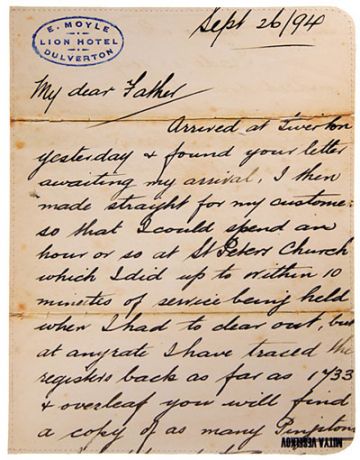 E. MOYLE
LION HOTEL
DULVERTON
Sept 26/94
My dear Father
Arrived at Tiverton
yesterday & found your letter
awaiting my arrival. I then
made straight for my custome
so that I could spend an
hour or so at St Peters Church
which I did up to within 10
minutes of service being held
when I had to clear out, but
at anyrate I have traced the
registers back as far as 1733
& overleaf you will find
a copy of as many
MITYA VESELKOV